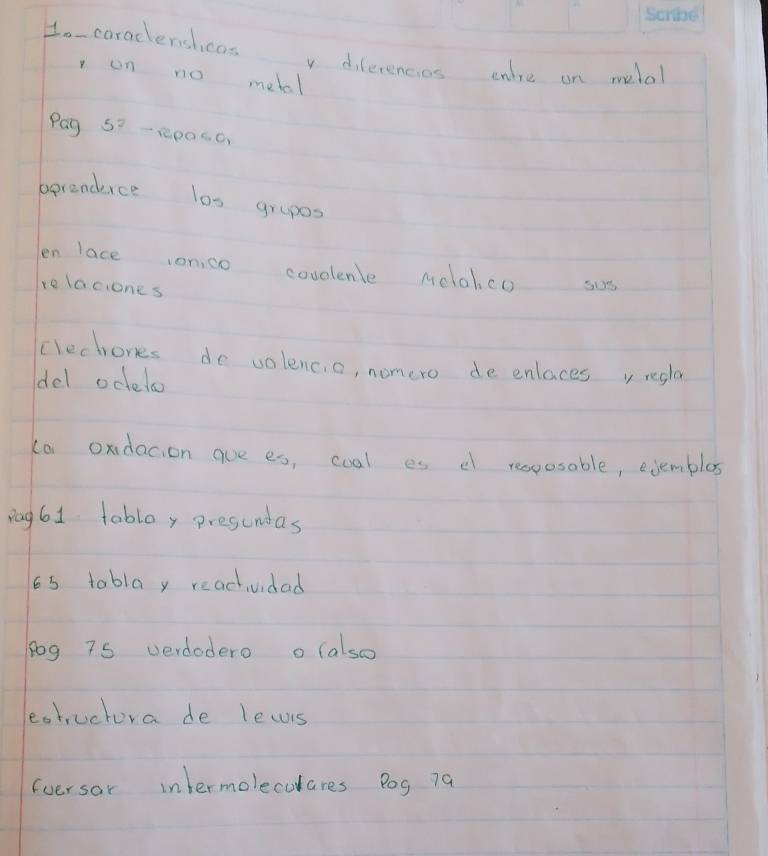 Scribe
1.- caracteristicas y diferencias entre un metal
y un no metal
Pag 57 - repasar
aprenderce los grupos
en lace ionico covalente Metalico sus
relaciones
electrones de valencia, nomero de enlaces y regla
del octeto
La oxidacion que es, cual es el resposable, ejemblos
Pag 61 tabla y preguntas
65 tabla y reactividad
Pag 75 verdadero o falso
estructura de lewis
fuersar intermoleculares Pag 79